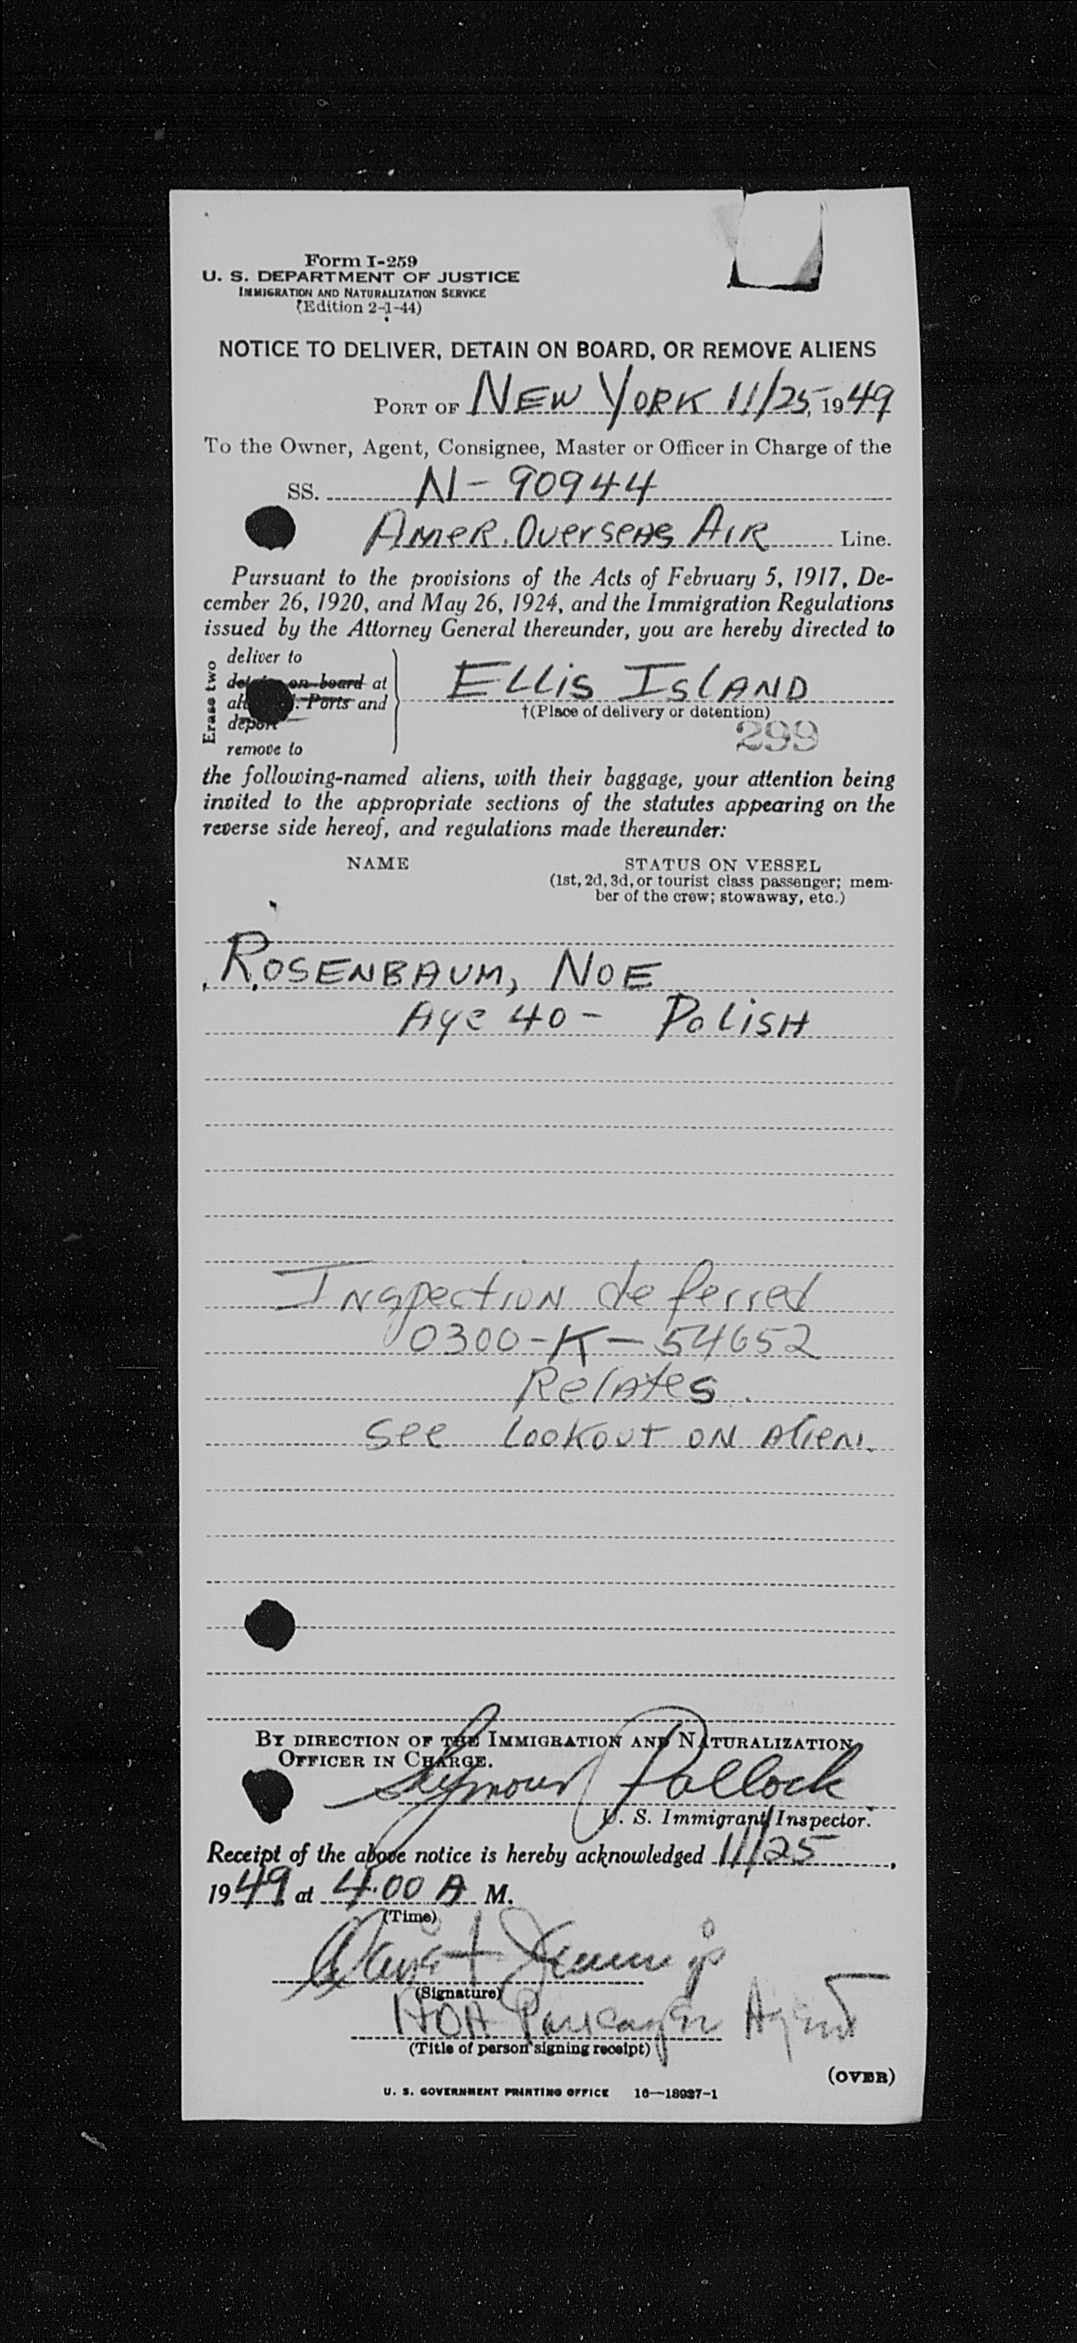 Form I-259
U. S. DEPARTMENT OF JUSTICE
IMMIGRATION AND NATURALIZATION SERVICE
(Edition 2-1-44)
NOTICE TO DELIVER, DETAIN ON BOARD, OR REMOVE ALIENS
PORT OF NEW YORK 11/25, 1949
To the Owner, Agent, Consignee, Master or Officer in Charge of the
SS. N-90944
AMER. OVERSEAS AIR Line.
Pursuant to the provisions of the Acts of February 5, 1917, De-
cember 26, 1920, and May 26, 1924, and the Immigration Regulations
issued by the Attorney General thereunder, you are hereby directed to
Erase two
deliver to
on board at
Ports and
deport
remove to
ELLIS ISLAND
†(Place of delivery or detention)
299
the following-named aliens, with their baggage, your attention being
invited to the appropriate sections of the statutes appearing on the
reverse side hereof, and regulations made thereunder:
NAME STATUS ON VESSEL
(1st, 2d, 3d, or tourist class passenger; mem-
ber of the crew; stowaway, etc.)
ROSENBAUM, NOE
Age 40 - POLISH
Inspection deferred
0300-K-54652
Relates.
See Lookout on Alien.
BY DIRECTION OF THE IMMIGRATION AND NATURALIZATION
OFFICER IN CHARGE.
Seymour Pollock
U. S. Immigrant Inspector.
Receipt of the above notice is hereby acknowledged 11/25,
1949 at 4:00 A M.
(Time)
Jennings
(Signature)
AOA Passenger Agent
(Title of person signing receipt)
(OVER)
U. S. GOVERNMENT PRINTING OFFICE 16—18937-1